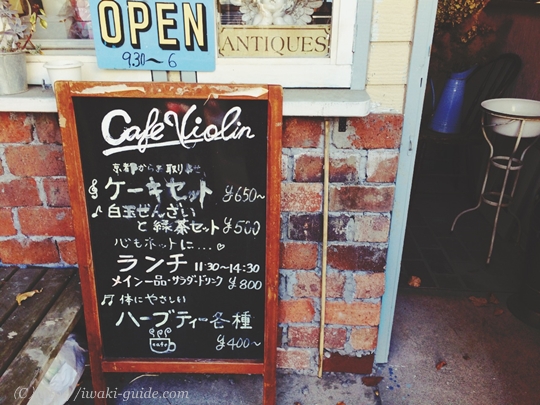 OPEN
9.30〜6
ANTIQUES
Café Violin
京都からお取り寄せ
ケーキセット ¥650〜
白玉ぜんざい
と緑茶セット ¥500
心もホットに…♡
ランチ 11:30〜14:30
メイン一品・サラダ・ドリンク ¥800
体にやさしい
ハーブティー各種
cafe
¥400〜
(C) iwaki-guide.com